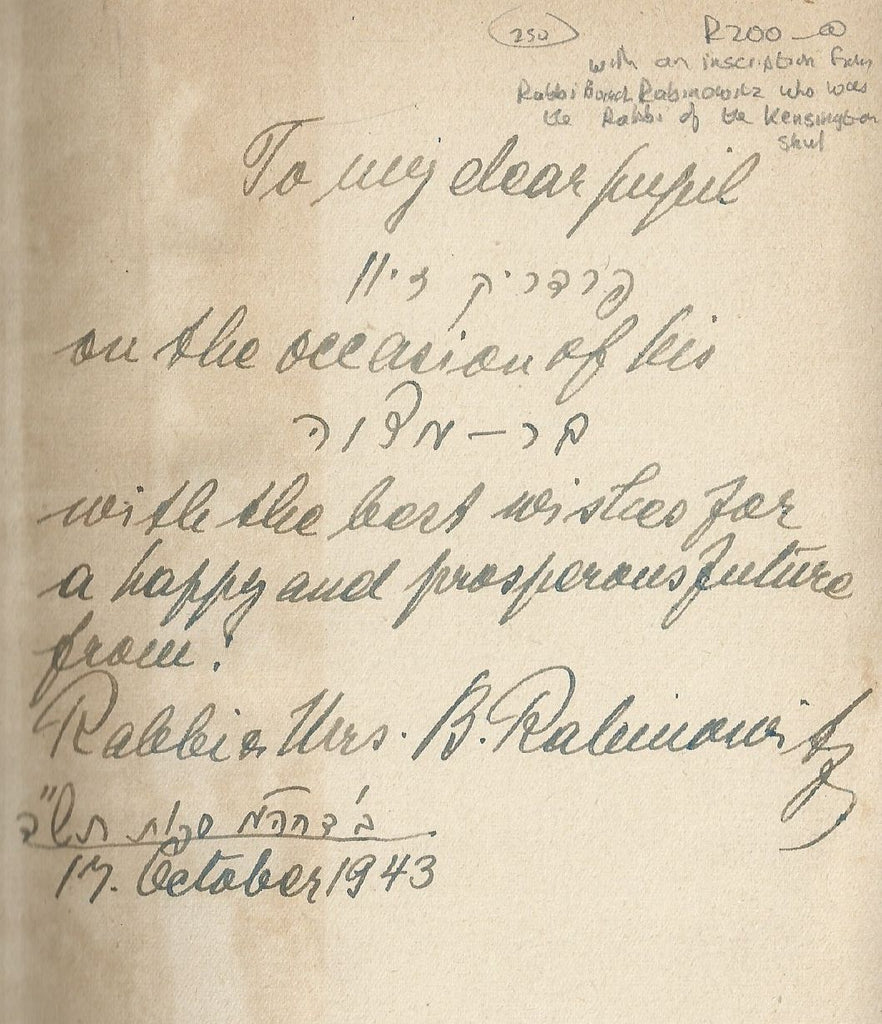 250 R200-00
with an inscription from
Rabbi Boruch Rabinowitz who was
the Rabbi of the Kensington
shul
To my dear pupil
פרדריק
on the occasion of his
בר-מצוה
with the best wishes for
a happy and prosperous future
from:
Rabbi & Mrs. B. Rabinowitz
ב' דחהמ סכות תש"ד
17. October 1943